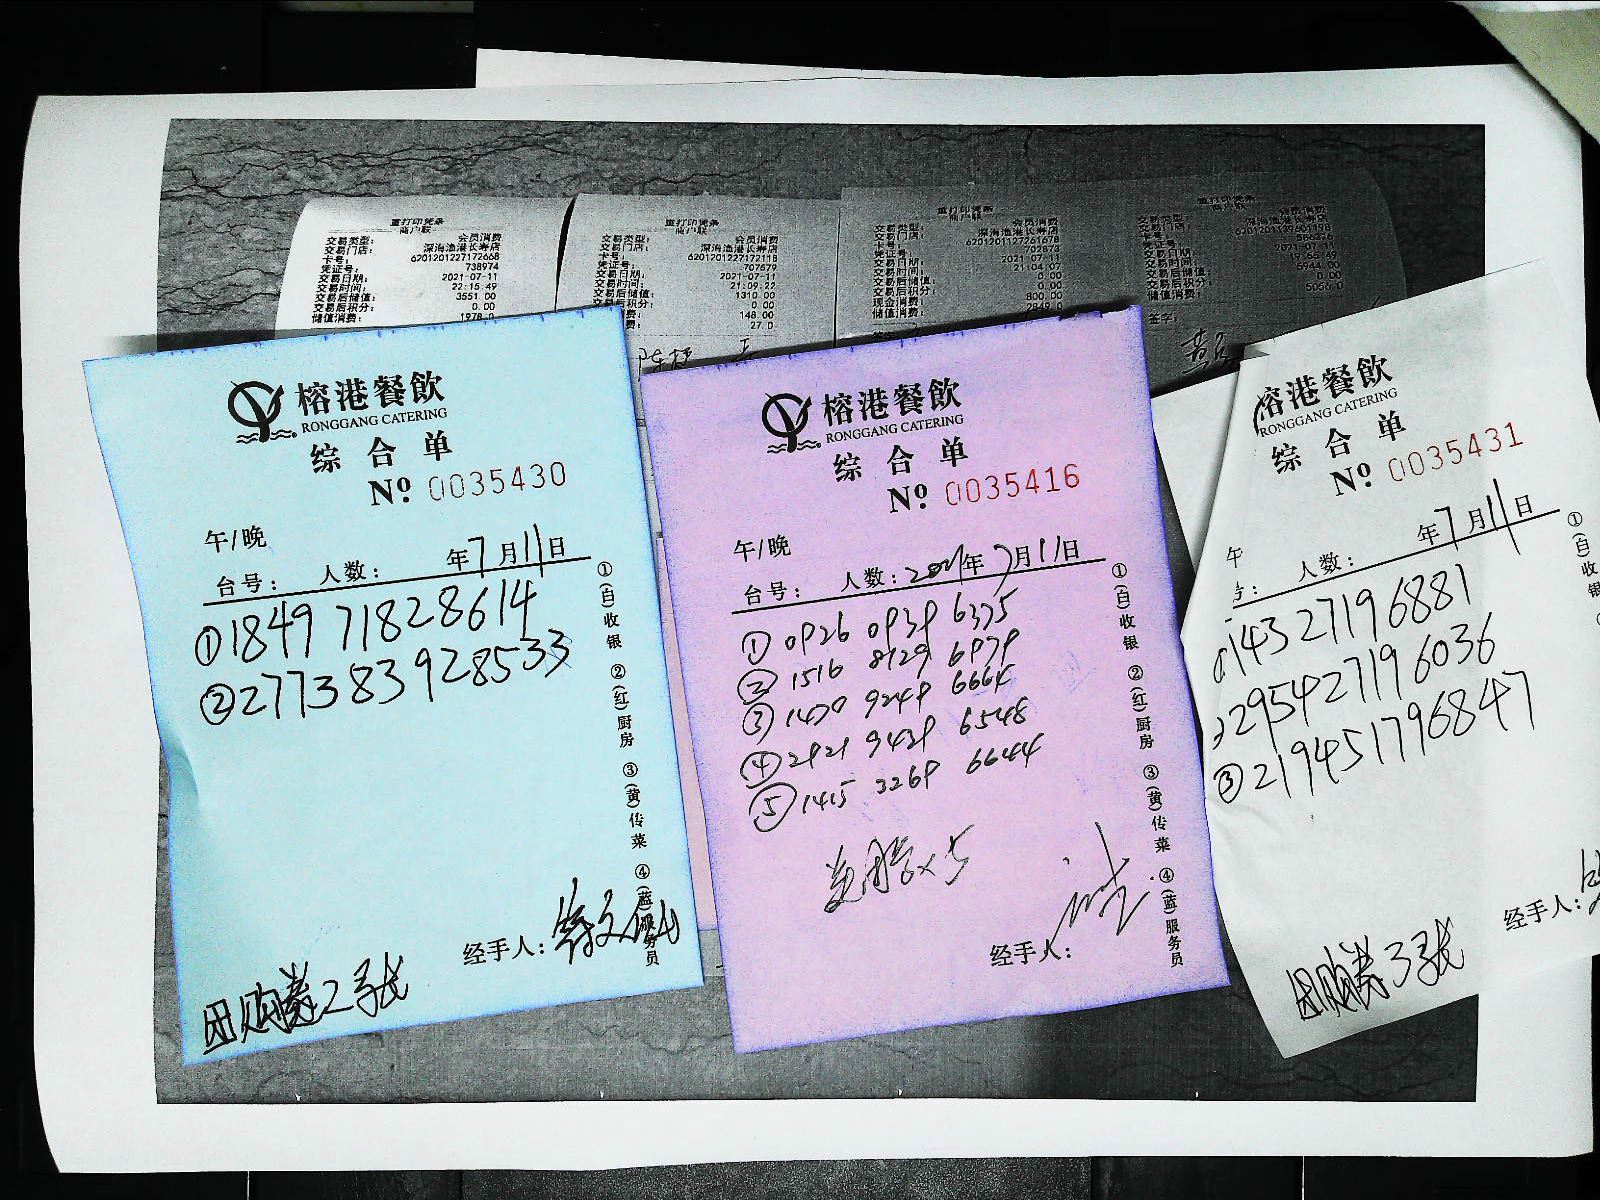 重打印凭条
商户联
交易类型： 会员消费
交易门店： 深海渔港长寿店
卡号： 6201201227172668
凭证号： 738974
交易日期： 2021-07-11
交易时间： 22:15:49
交易后储值： 3551.00
交易后积分： 0.00
储值消费： 1978.0
重打印凭条
商户联
交易类型： 会员消费
交易门店： 深海渔港长寿店
卡号： 6201201227172118
凭证号： 707679
交易日期： 2021-07-11
交易时间： 21:09:22
交易后储值： 1310.00
交易后积分： 0.00
148.00
27.0
重打印凭条
商户联
交易类型： 会员消费
交易门店： 深海渔港长寿店
卡号： 6201201127261678
凭证号： 702873
交易日期： 2021-07-11
交易时间： 21:04:07
交易后储值： 0.00
交易后积分： 0.00
现金消费： 800.00
储值消费：
重打印凭条
商户联
交易类型： 会员消费
交易门店： 深海渔港长寿店
卡号：
凭证号：
交易日期： 2021-07-11
交易时间： 19:56:49
交易后储值： 5944.00
交易后积分： 0.00
储值消费： 5056.0
签字：
榕港餐飲
RONGGANG CATERING
综合单
Nº 0035430
午/晚
年7月11日
台号： 人数：
①1849 71828614
②277383928533
①(白)收银 ②(红)厨房 ③(黄)传菜 ④(蓝)服务员
经手人：
团购券2张
榕港餐飲
RONGGANG CATERING
综合单
Nº 0035416
午/晚
台号： 人数： 2021年7月11日
① 0926 0939 6375
② 1516 8129 6979
③ 1470 9249 6664
④ 2921 9439 6548
⑤ 1415 3269 6644
美团券×5
①(白)收银 ②(红)厨房 ③(黄)传菜 ④(蓝)服务员
经手人：
榕港餐飲
RONGGANG CATERING
综合单
Nº 0035431
午
年7月11日
号： 人数：
143 27196881
295427196036
③219451796847
①(白)收银
经手人：
团购券3张